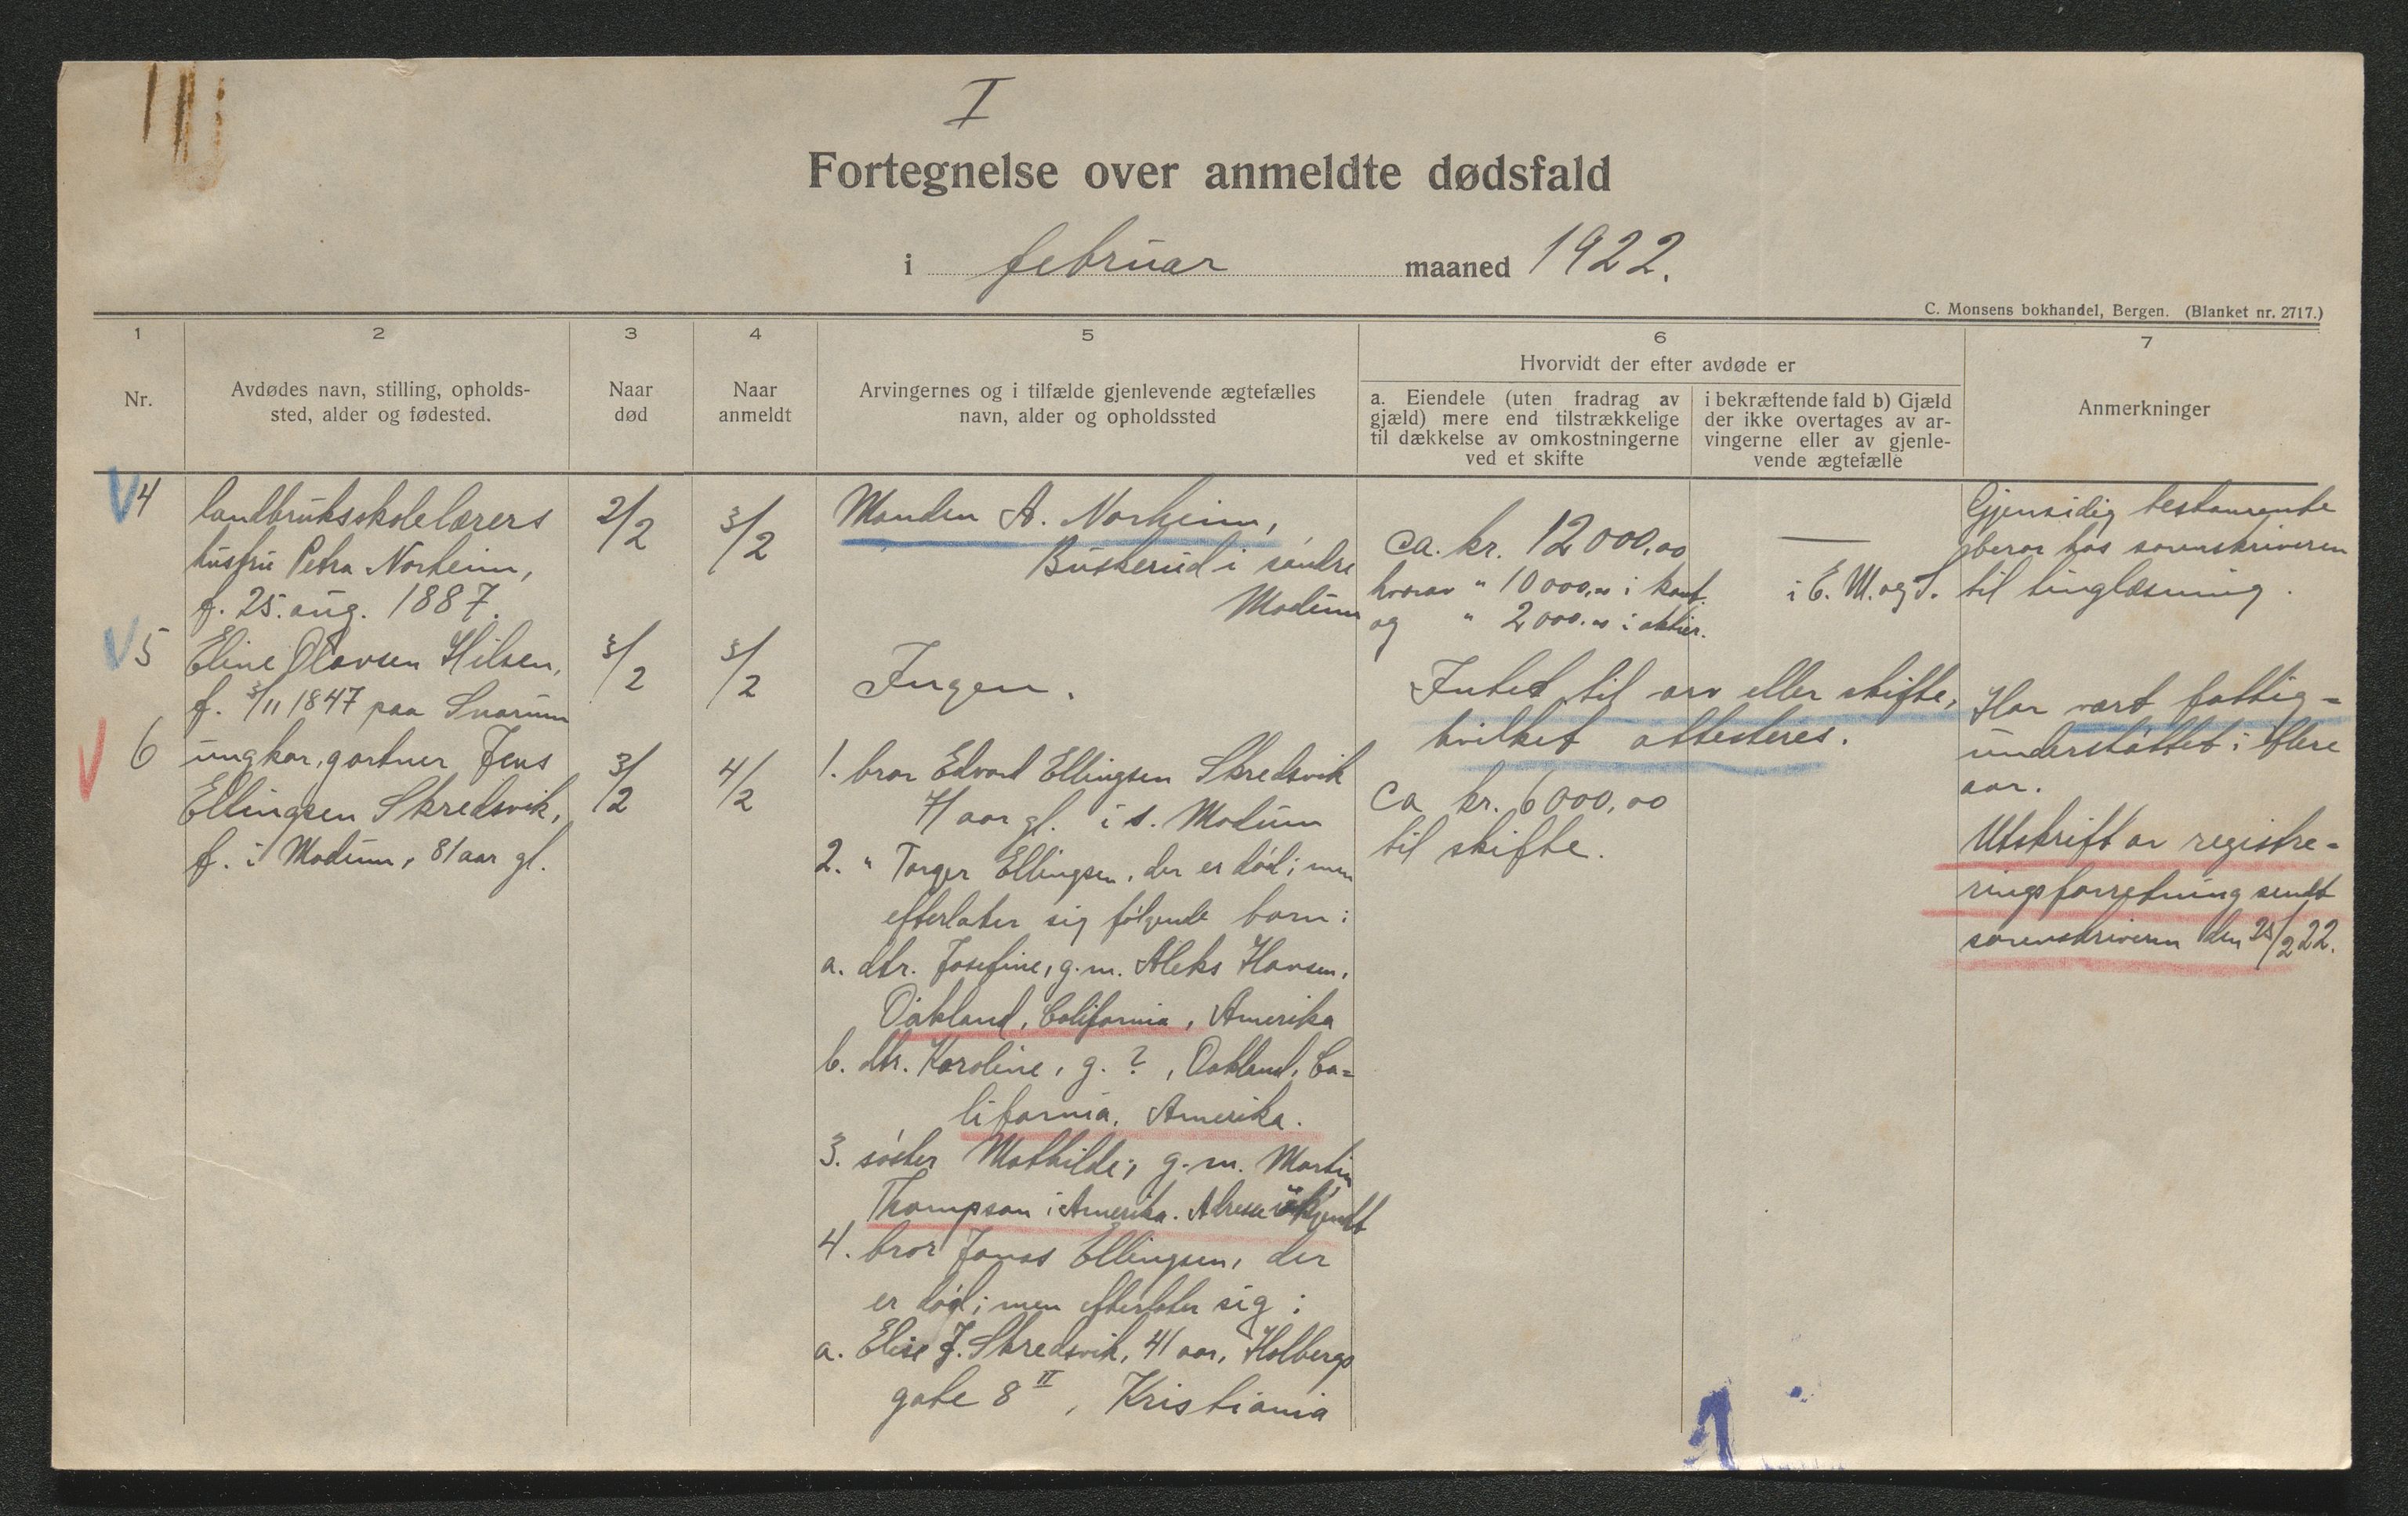 I
Fortegnelse over anmeldte dødsfald
i februar maaned 1922.
C. Monsens bokhandel, Bergen. (Blanket nr. 2717.)
1
Nr.
2
Avdødes navn, stilling, opholds-
sted, alder og fødested.
3
Naar
død
4
Naar
anmeldt
5
Arvingernes og i tilfælde gjenlevende ægtefælles
navn, alder og opholdssted
6
Hvorvidt der efter avdøde er
a. Eiendele (uten fradrag av
gjæld) mere end tilstrækkelige
til dækkelse av omkostningerne
ved et skifte
i bekræftende fald b) Gjæld
der ikke overtages av ar-
vingerne eller av gjenle-
vende ægtefælle
7
Anmerkninger
4
landbruksskolelærers
husfru Petra Norheim,
f. 25. aug. 1887.
2/2
3/2
Manden A. Norheim,
Buskerud i søndre
Modum
ca. kr. 12000,00
hvorav " 10000,00 i kont.
og " 2000.00 i aktier.
—
i E. M. og S.
Gjensidig testamente
beror hos sorenskriveren
til tinglæsning.
5
Eline Olavsen Hilsen,
f. 3/11 1847 paa Snarum
3/2
3/2
Ingen.
Intet til arv eller skifte,
hvilket attesteres.
Har vært fattig-
understøttet i flere
aar.
6
ungkar, gartner Jens
Ellingsen Skredsvik,
f. i Modum, 81 aar gl.
3/2
4/2
1. bror Edvard Ellingsen Skredsvik
71 aar gl. i s. Modum
2. " Torger Ellingsen, der er død; men
efterlater sig følgende barn:
a. dtr. Josefine, g. m. Aleks Hansen,
Oakland, California, Amerika
b. dtr. Karoline, g. ?, Oakland, Ca-
lifornia, Amerika.
3. søster Mathilde, g. m. Martin
Thompson i Amerika. Adresse ukjendt
4. bror Jonas Ellingsen, der
er død; men efterlater sig:
a. Elise J. Skredsvik, 41 aar, Holbergs
gate 8 II, Kristiania
ca kr. 6000,00
til skifte.
Utskrift av registre-
ringsforretning sendt
sorenskriveren den 25/2 22.
1